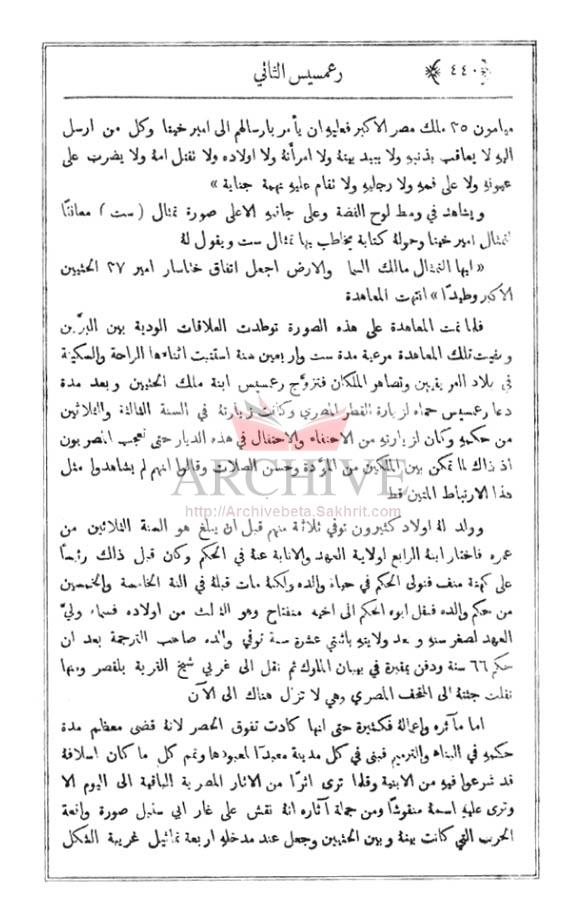 ﴿٤٤٠﴾ رعمسيس الثاني
ميامون ٣٥ ملك مصر الاكبر فعليهِ ان يأمر بارسالهم الى امير خيتا وكل من ارسل
اليهِ لا يعاقب بذنبهِ ولا يبيد بيتهُ ولا امرأتهُ ولا اولاده ولا تقتل امهُ ولا يضرب على
عيونهِ ولا على فمهِ ولا رجليهِ ولا تقام عليهِ تهمة جناية »
ويشاهد في وسط لوح الفضة وعلى جانبهِ الاعلى صورة تمثال ( ست ) معانقًا
لتمثال امير خيتا وحولهُ كتابة يخاطب بها تمثال ست ويقول لهُ
« ايها التمثال مالك السما والارض اجعل اتفاق خناسار امير ٣٧ الحثيين
الاكبر وطيدًا » انتهت المعاهدة
فلما تمت المعاهدة على هذه الصورة توطدت العلاقات الودية بين البرّين
وبقيت تلك المعاهدة مرعية مدة ست واربعين سنة استتبت اثناءها الراحة والسكينة
في بلاد الفريقين وتصاهر الملكان فتزوَّج رعمسيس ابنة ملك الحثيين وبعد مدة
دعا رعمسيس حماه لزيارة القطر المصري وكانت زيارتهُ في السنة الثالثة والثلاثين
من حكمهِ وكان لزيارتهِ من الاحتفاء والاحتفال في هذه الديار حتى تعجب المصريون
اذ ذاك لما تمكن بين الملكين من المودَّة وحسن الصلات وقالوا انهم لم يشاهدوا مثل
هذا الارتباط المتين قط
ARCHIVE
http://Archivebeta.Sakhrit.com
وولد لهُ اولاد كثيرون توفي ثلاثة منهم قبل ان يبلغ هو السنة الثلاثين من
عمره فاختار ابنهُ الرابع لولاية العهد والانابة عنهُ في الحكم وكان قبل ذلك رئيسًا
على كهنة منف فتولى الحكم في حياة والده ولكنهُ مات قبلهُ في السنة الخامسة والخمسين
من حكم والده فنقل ابوه الحكم الى اخيهِ منفتاح وهو الثالث من اولاده فسماه وليّ
العهد لصغر سنهِ وبعد ولايتهِ باثنتي عشرة سنة توفي والده صاحب الترجمة بعد ان
حكم ٦٦ سنة ودفن بمقبرة في بيبان الملوك ثم نقل الى غربي شيخ القرية بلقصر ومنها
نقلت جثتهُ الى المتحف المصري وهي لا تزل هناك الى الآن
اما مآثره واعمالهُ فكثيرة حتى انها كادت تفوق الحصر لانهُ قضى معظم مدة
حكمهِ في البناء والترميم فبنى في كل مدينة معبدًا لمعبودها وتمم كل ما كان اسلافهُ
قد شرعوا فيهِ من الابنية وقلما ترى اثرًا من الاثار المصرية الباقية الى اليوم الا
وترى عليهِ اسمهُ منقوشًا ومن جملة آثاره انهُ نقش على غار ابي سنبل صورة واقعة
الحرب التي كانت بينهُ وبين الحثيين وجعل عند مدخلهِ اربعة تماثيل غريبة الشكل